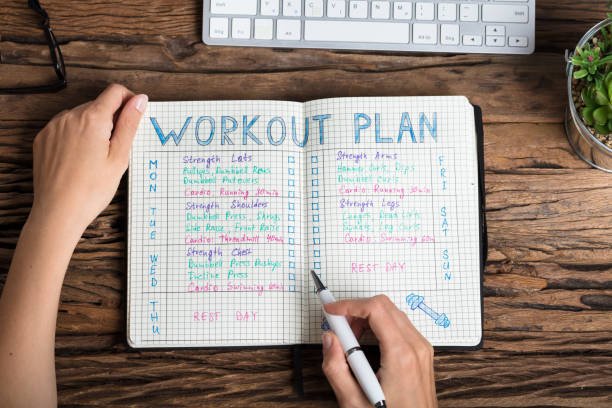 WORKOUT PLAN
MON
Strength Lats
Pullups, Dumbbell Rows
Dumbbell Pullovers
Cardio: Running 30min
TUE
Strength Shoulders
Dumbbell Press, Shrugs
Side Raise Raise
Cardio: Threadmill 40min
WED
Strength Chest
Dumbbell Press Pushups
Incline Press
Cardio: Swimming 60min
THU
REST DAY
FRI
Strength Arms
Hammer Curls, Dips
Dumbbell Curls
Cardio: Running 30min
SAT
Strength Legs
Lunges, Dead Lifts
Squats, Leg Curls
Cardio: Swimming 60m
SUN
REST DAY